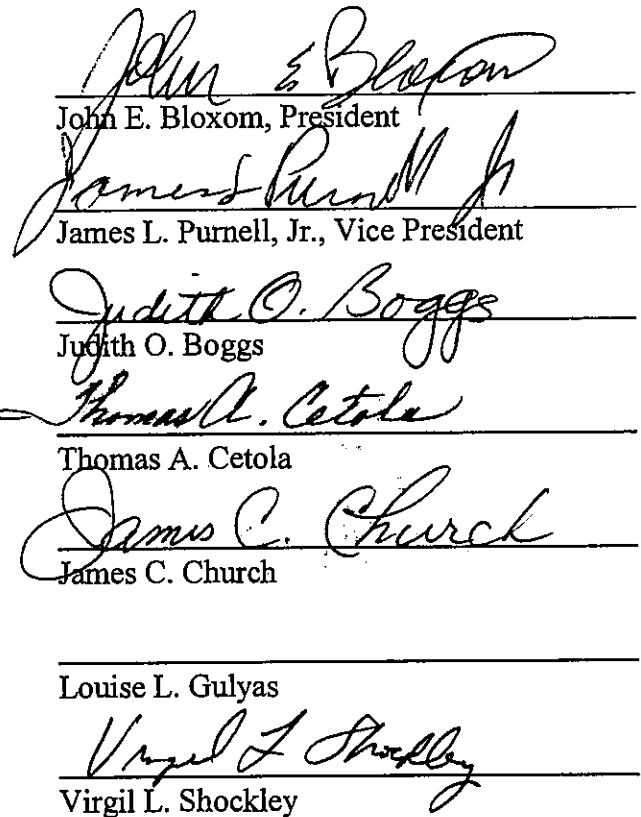 John E Bloxom
John E. Bloxom, President
James L Purnell Jr
James L. Purnell, Jr., Vice President
Judith O. Boggs
Judith O. Boggs
Thomas A. Cetola
Thomas A. Cetola
James C. Church
James C. Church
Louise L. Gulyas
Virgil L Shockley
Virgil L. Shockley